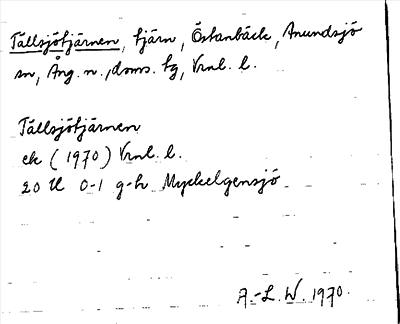 Tällsjötjärnen, tjärn, Östanbäck, Anundsjö
sn, Ång. n., doms. fg, Vrnl. l.
Tällsjötjärnen
ek (1970) Vrnl. l.
20 H 0-1 g-h Myckelgensjö
A.-L. W. 1970.